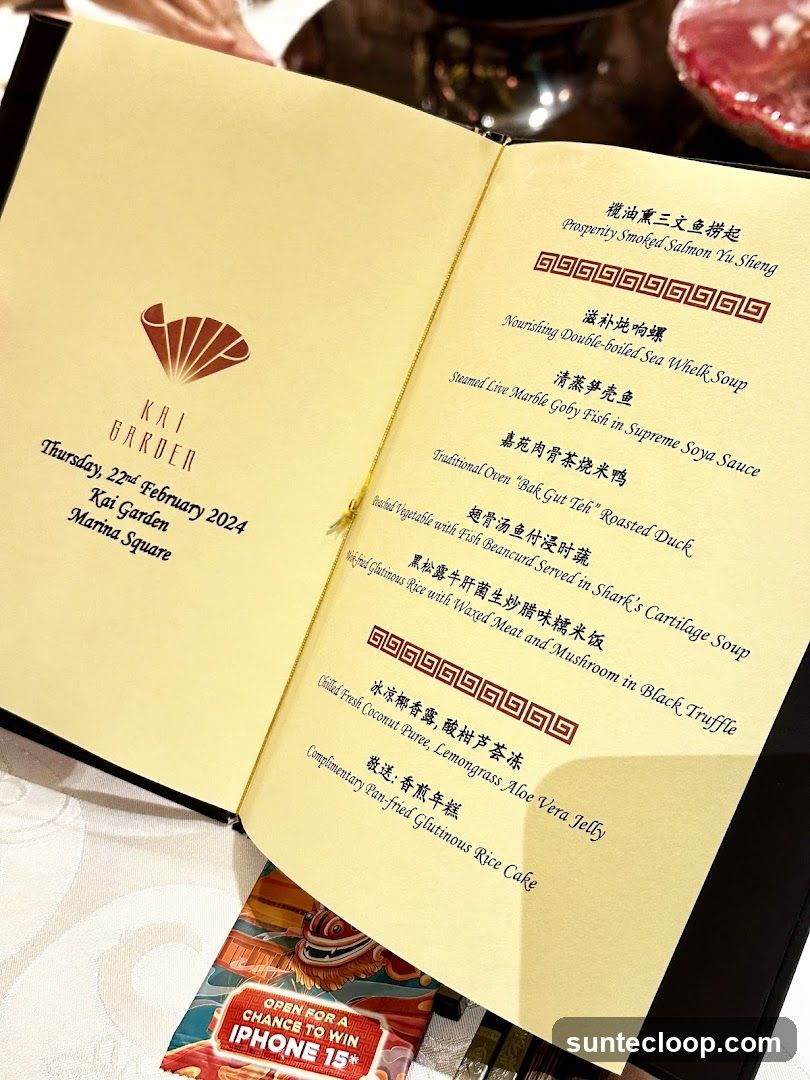 KAI
GARDEN
Thursday, 22nd February 2024
Kai Garden
Marina Square
榄油熏三文鱼捞起
Prosperity Smoked Salmon Yu Sheng
滋补炖响螺
Nourishing Double-boiled Sea Whelk Soup
清蒸笋壳鱼
Steamed Live Marble Goby Fish in Supreme Soya Sauce
嘉苑肉骨茶烧米鸭
Traditional Oven "Bak Gut Teh" Roasted Duck
翅骨汤鱼付浸时蔬
Poached Vegetable with Fish Beancurd Served in Shark's Cartilage Soup
黑松露牛肝菌生炒腊味糯米饭
Wok-fried Glutinous Rice with Waxed Meat and Mushroom in Black Truffle
冰凉椰香露, 酸柑芦荟冻
Chilled Fresh Coconut Puree, Lemongrass Aloe Vera Jelly
敬送: 香煎年糕
Complimentary Pan-fried Glutinous Rice Cake
OPEN FOR A
CHANCE TO WIN
IPHONE 15*
suntecloop.com